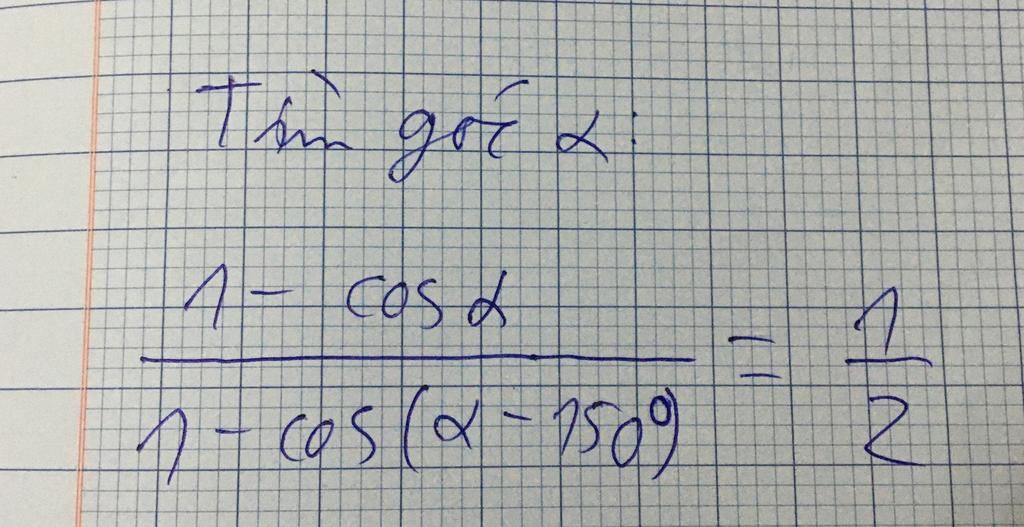 Tìm góc α:
1 - cos α
1 - cos(α - 150°)
= 1/2